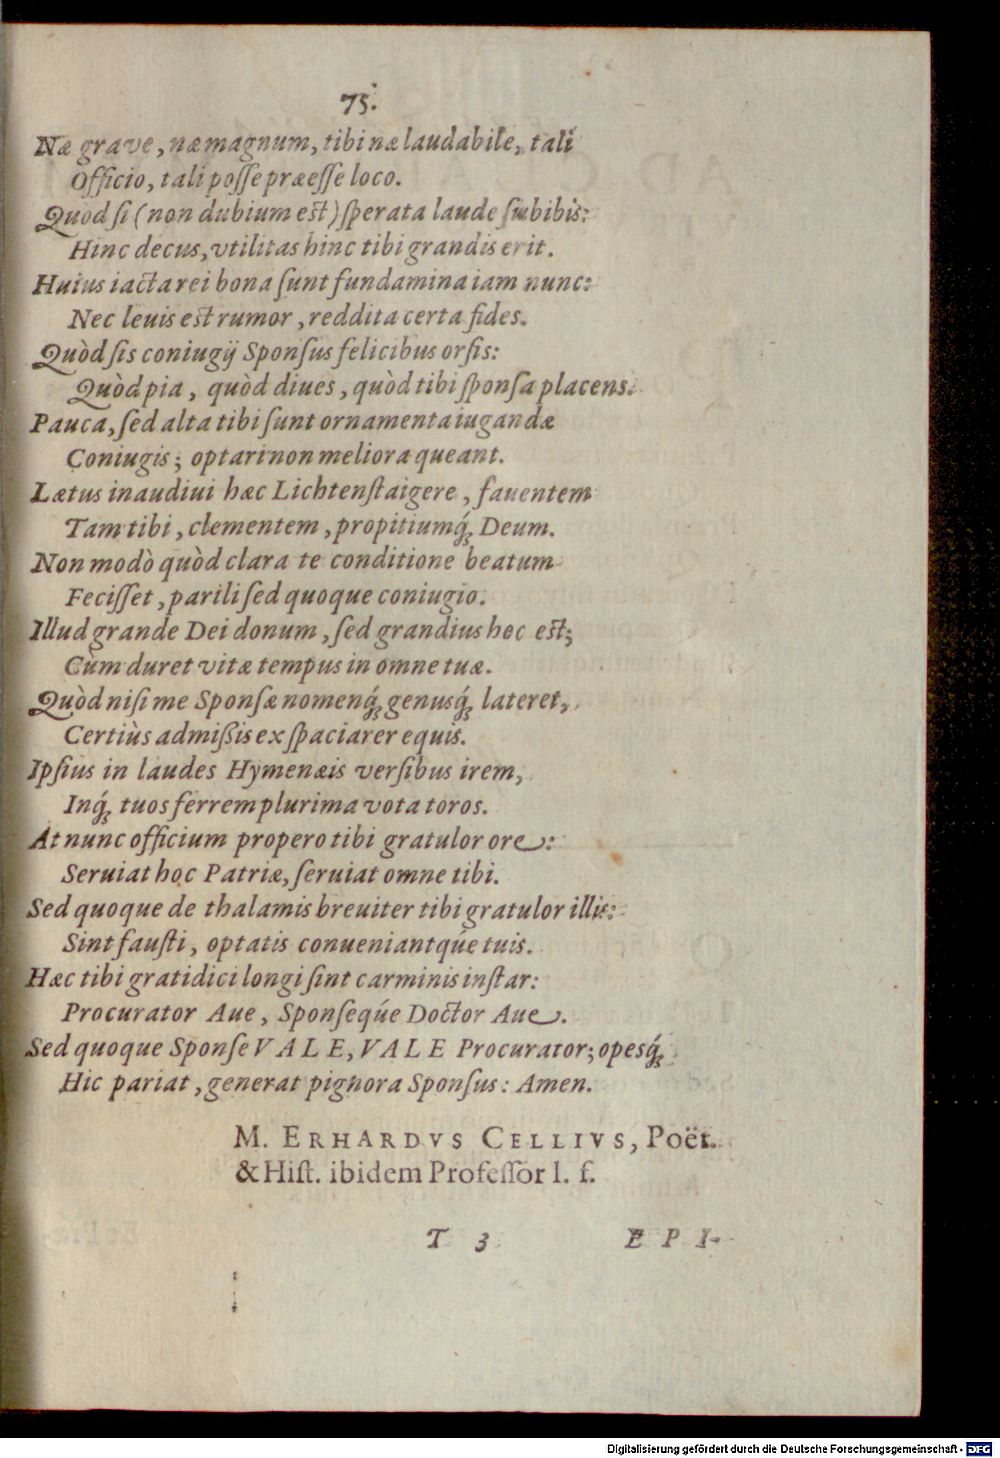 75.
Næ grave, næ magnum, tibi næ laudabile, tali
Officio, tali poſſe præeſſe loco.
Quòd ſi (non dubium est) ſperata laude ſubibis:
Hinc decus, vtilitas hinc tibi grandis erit.
Huius iacta rei bona ſunt fundamina iam nunc:
Nec leuis est rumor, reddita certa fides.
Quòd ſis coniugij Sponſus felicibus orſis:
Quòd pia, quòd diues, quòd tibi ſponſa placens.
Pauca, ſed alta tibi ſunt ornamenta iugandæ
Coniugis; optari non meliora queant.
Lætus inaudiui hæc Lichtenſtaigere, fauentem
Tam tibi, clementem, propitiumq́; Deum.
Non modò quòd clara te conditione beatum
Feciſſet, parili ſed quoque coniugio.
Illud grande Dei donum, ſed grandius hoc est;
Cùm duret vitæ tempus in omne tuæ.
Quòd niſi me Sponſæ nomenq́; genusq́; lateret,
Certiùs admißis exſpaciarer equis.
Ipſius in laudes Hymenæis verſibus irem,
Inq́; tuos ferrem plurima vota toros.
At nunc officium propero tibi gratulor ore:
Seruiat hoc Patriæ, ſeruiat omne tibi.
Sed quoque de thalamis breuiter tibi gratulor illis:
Sint fauſti, optatis conueniantq́ue tuis.
Hæc tibi gratidici longi ſint carminis inſtar:
Procurator Aue, Sponſeq́ue Doctor Aue.
Sed quoque Sponſe VALE, VALE Procurator; opesq́;
Hic pariat, generat pignora Sponſus: Amen.
M. ERHARDVS CELLIVS, Poët.
& Hiſt. ibidem Profeſſor I. f.
T 3 EPI-
Digitalisierung gefördert durch die Deutsche Forschungsgemeinschaft - DFG